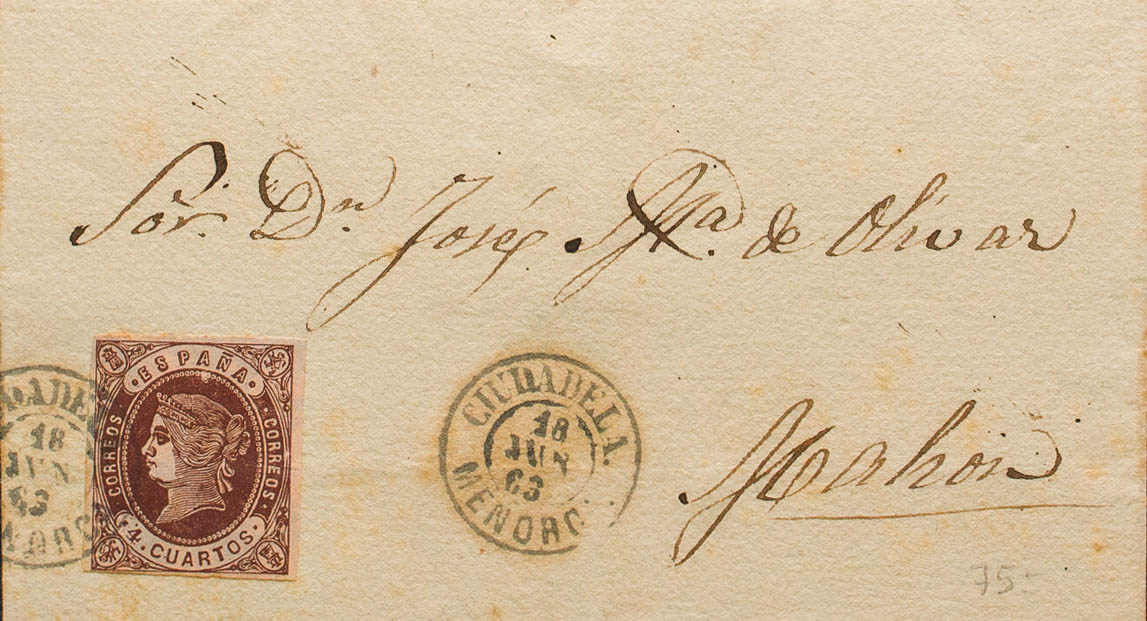 Sōr. Dn. José Ma. de Olivar
ESPAÑA
CORREOS
CORREOS
4 CUARTOS
DADE
18
JUN
63
NORC
CIUDADELA.
18
JUN
63
MENORC
Mahon
75-